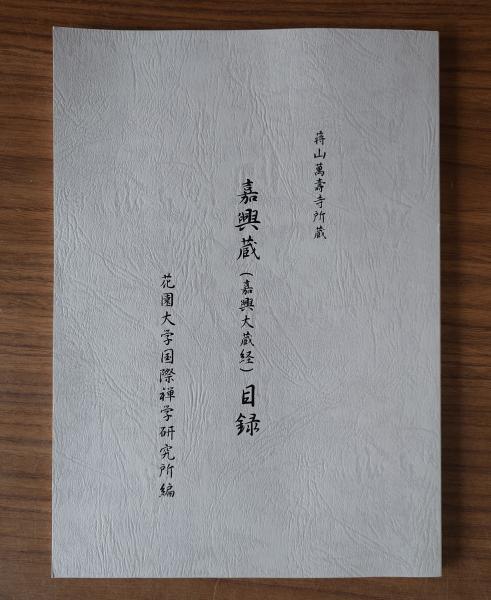 蒋山萬壽寺所蔵
嘉興蔵（嘉興大蔵経）目録
花園大学国際禅学研究所編